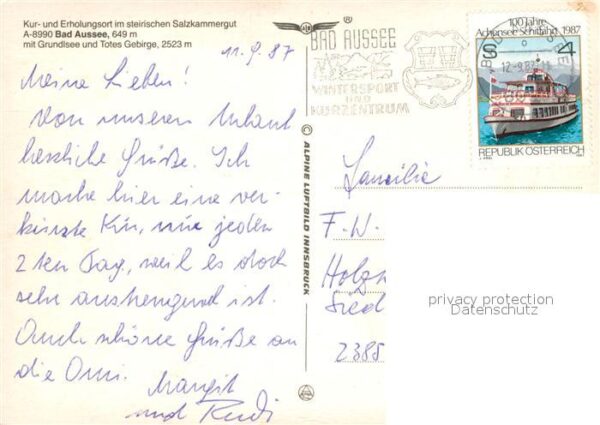 Kur- und Erholungsort im steirischen Salzkammergut
A-8990 Bad Aussee, 649 m
mit Grundlsee und Totes Gebirge, 2523 m
11.9.87
Meine Lieben!
Von unserem Urlaub
herzliche Grüße. Ich
mache hier eine ver-
kürzte Kur, nur jeden
2ten Tag, weil es doch
sehr anstrengend ist.
Auch schöne Grüße an
die Omi. Margit
und Rudi
ALPINE LUFTBILD INNSBRUCK
BAD AUSSEE
WINTERSPORT
UND
KURZENTRUM
12.-9.87
100 Jahre
Achensee-Schiffahrt, 1987
S 4
REPUBLIK ÖSTERREICH
Familie
F. W.
Holz
Sied
2385
privacy protection
Datenschutz